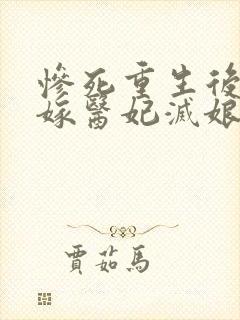 慘死重生後
嫁醫妃滅娘
賈茹馬